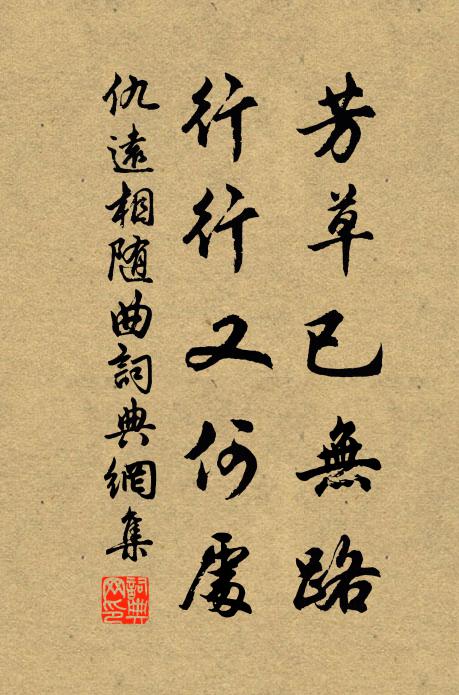 芳草已無路
行行又何處
仇遠相随曲詞典網集
詞典
网印